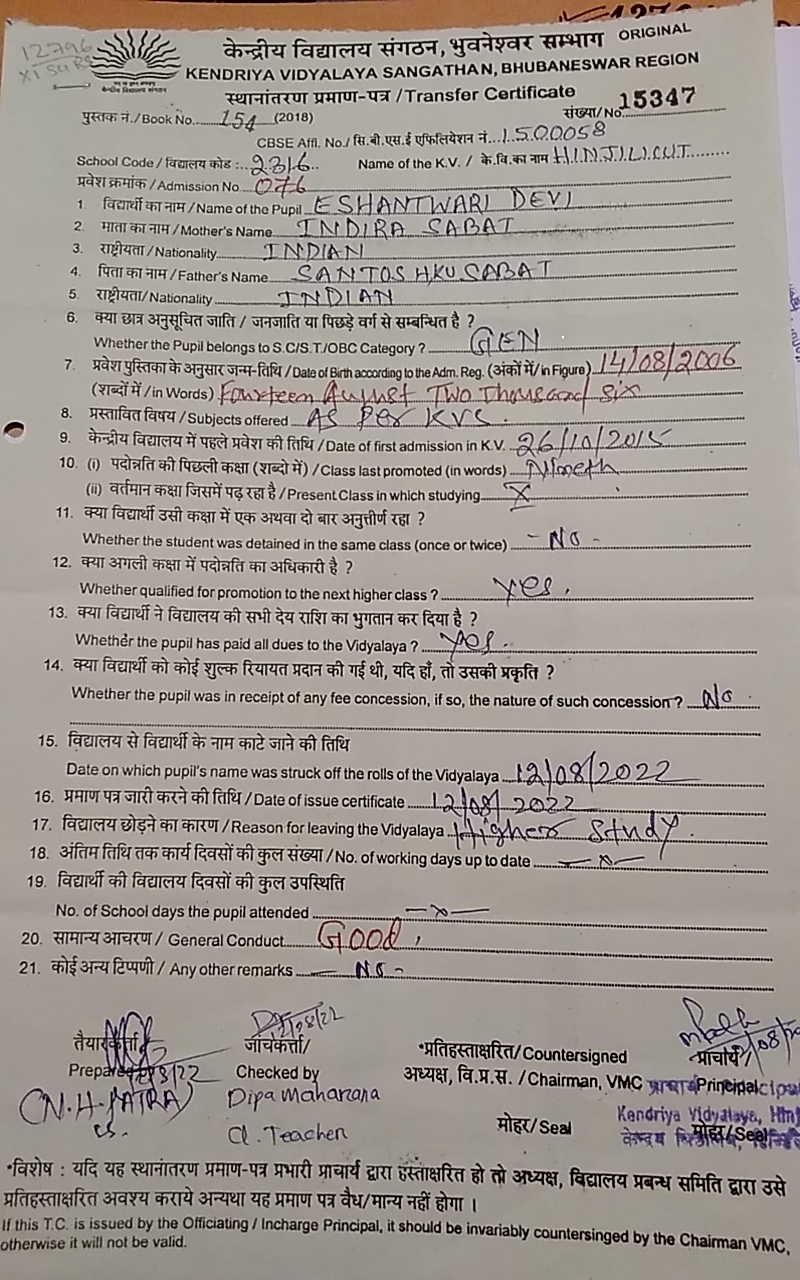 12796
केन्द्रीय विद्यालय संगठन, भुवनेश्वर सम्भाग ORIGINAL
केन्द्रीय विद्यालय संगठन
KENDRIYA VIDYALAYA SANGATHAN, BHUBANESWAR REGION
स्थानांतरण प्रमाण-पत्र / Transfer Certificate
पुस्तक नं./Book No. 154 (2018) संख्या/No. 15347
CBSE Affl. No./ सि.बी.एस.ई एफिलियेशन नं. 1500058
School Code / विद्यालय कोड : 2316 Name of the K.V. / के.वि.का नाम HINJILICUT
प्रवेश क्रमांक / Admission No 076
1. विद्यार्थी का नाम / Name of the Pupil ESHANTWARI DEVI
2. माता का नाम / Mother's Name INDIRA SABAT
3. राष्ट्रीयता / Nationality INDIAN
4. पिता का नाम / Father's Name SANTOSH KU SABAT
5. राष्ट्रीयता/ Nationality INDIAN
6. क्या छात्र अनुसूचित जाति / जनजाति या पिछड़े वर्ग से सम्बन्धित है ?
Whether the Pupil belongs to S.C/S.T./OBC Category ? GEN
7. प्रवेश पुस्तिका के अनुसार जन्म-तिथि / Date of Birth according to the Adm. Reg. (अंकों में/ in Figure) 14/08/2006
(शब्दों में / in Words) Fourteen August Two Thousand six
8. प्रस्तावित विषय / Subjects offered As Per KVS
9. केन्द्रीय विद्यालय में पहले प्रवेश की तिथि / Date of first admission in K.V. 26/10/2015
10. (i) पदोन्नति की पिछली कक्षा (शब्दो में) / Class last promoted (in words) Nineth
(ii) वर्तमान कक्षा जिसमें पढ़ रहा है / Present Class in which studying X
11. क्या विद्यार्थी उसी कक्षा में एक अथवा दो बार अनुत्तीर्ण रहा ?
Whether the student was detained in the same class (once or twice) - No -
12. क्या अगली कक्षा में पदोन्नति का अधिकारी है ?
Whether qualified for promotion to the next higher class ? Yes.
13. क्या विद्यार्थी ने विद्यालय की सभी देय राशि का भुगतान कर दिया है ?
Whether the pupil has paid all dues to the Vidyalaya ? Yes.
14. क्या विद्यार्थी को कोई शुल्क रियायत प्रदान की गई थी, यदि हाँ, तो उसकी प्रकृति ?
Whether the pupil was in receipt of any fee concession, if so, the nature of such concession ? No
15. विद्यालय से विद्यार्थी के नाम काटे जाने की तिथि
Date on which pupil's name was struck off the rolls of the Vidyalaya 12/08/2022
16. प्रमाण पत्र जारी करने की तिथि / Date of issue certificate 12/08/2022
17. विद्यालय छोड़ने का कारण / Reason for leaving the Vidyalaya Higher Study.
18. अंतिम तिथि तक कार्य दिवसों की कुल संख्या / No. of working days up to date — x —
19. विद्यार्थी की विद्यालय दिवसों की कुल उपस्थिति
No. of School days the pupil attended — x —
20. सामान्य आचरण / General Conduct Good,
21. कोई अन्य टिप्पणी / Any other remarks — No -
तैयारकर्त्ता/ जाँचकर्त्ता/ *प्रतिहस्ताक्षरित/ Countersigned प्राचार्य/
Prepared Checked by अध्यक्ष, वि.प्र.स. / Chairman, VMC प्राचार्य Principal
(N.H. PATRA) Dipa Maharana मोहर/ Seal Kendriya Vidyalaya, Hinj
Cl. Teacher मोहर/ Seal
*विशेष : यदि यह स्थानांतरण प्रमाण-पत्र प्रभारी प्राचार्य द्वारा हस्ताक्षरित हो तो अध्यक्ष, विद्यालय प्रबन्ध समिति द्वारा उसे
प्रतिहस्ताक्षरित अवश्य कराये अन्यथा यह प्रमाण पत्र वैध/मान्य नहीं होगा ।
If this T.C. is issued by the Officiating / Incharge Principal, it should be invariably countersinged by the Chairman VMC,
otherwise it will not be valid.